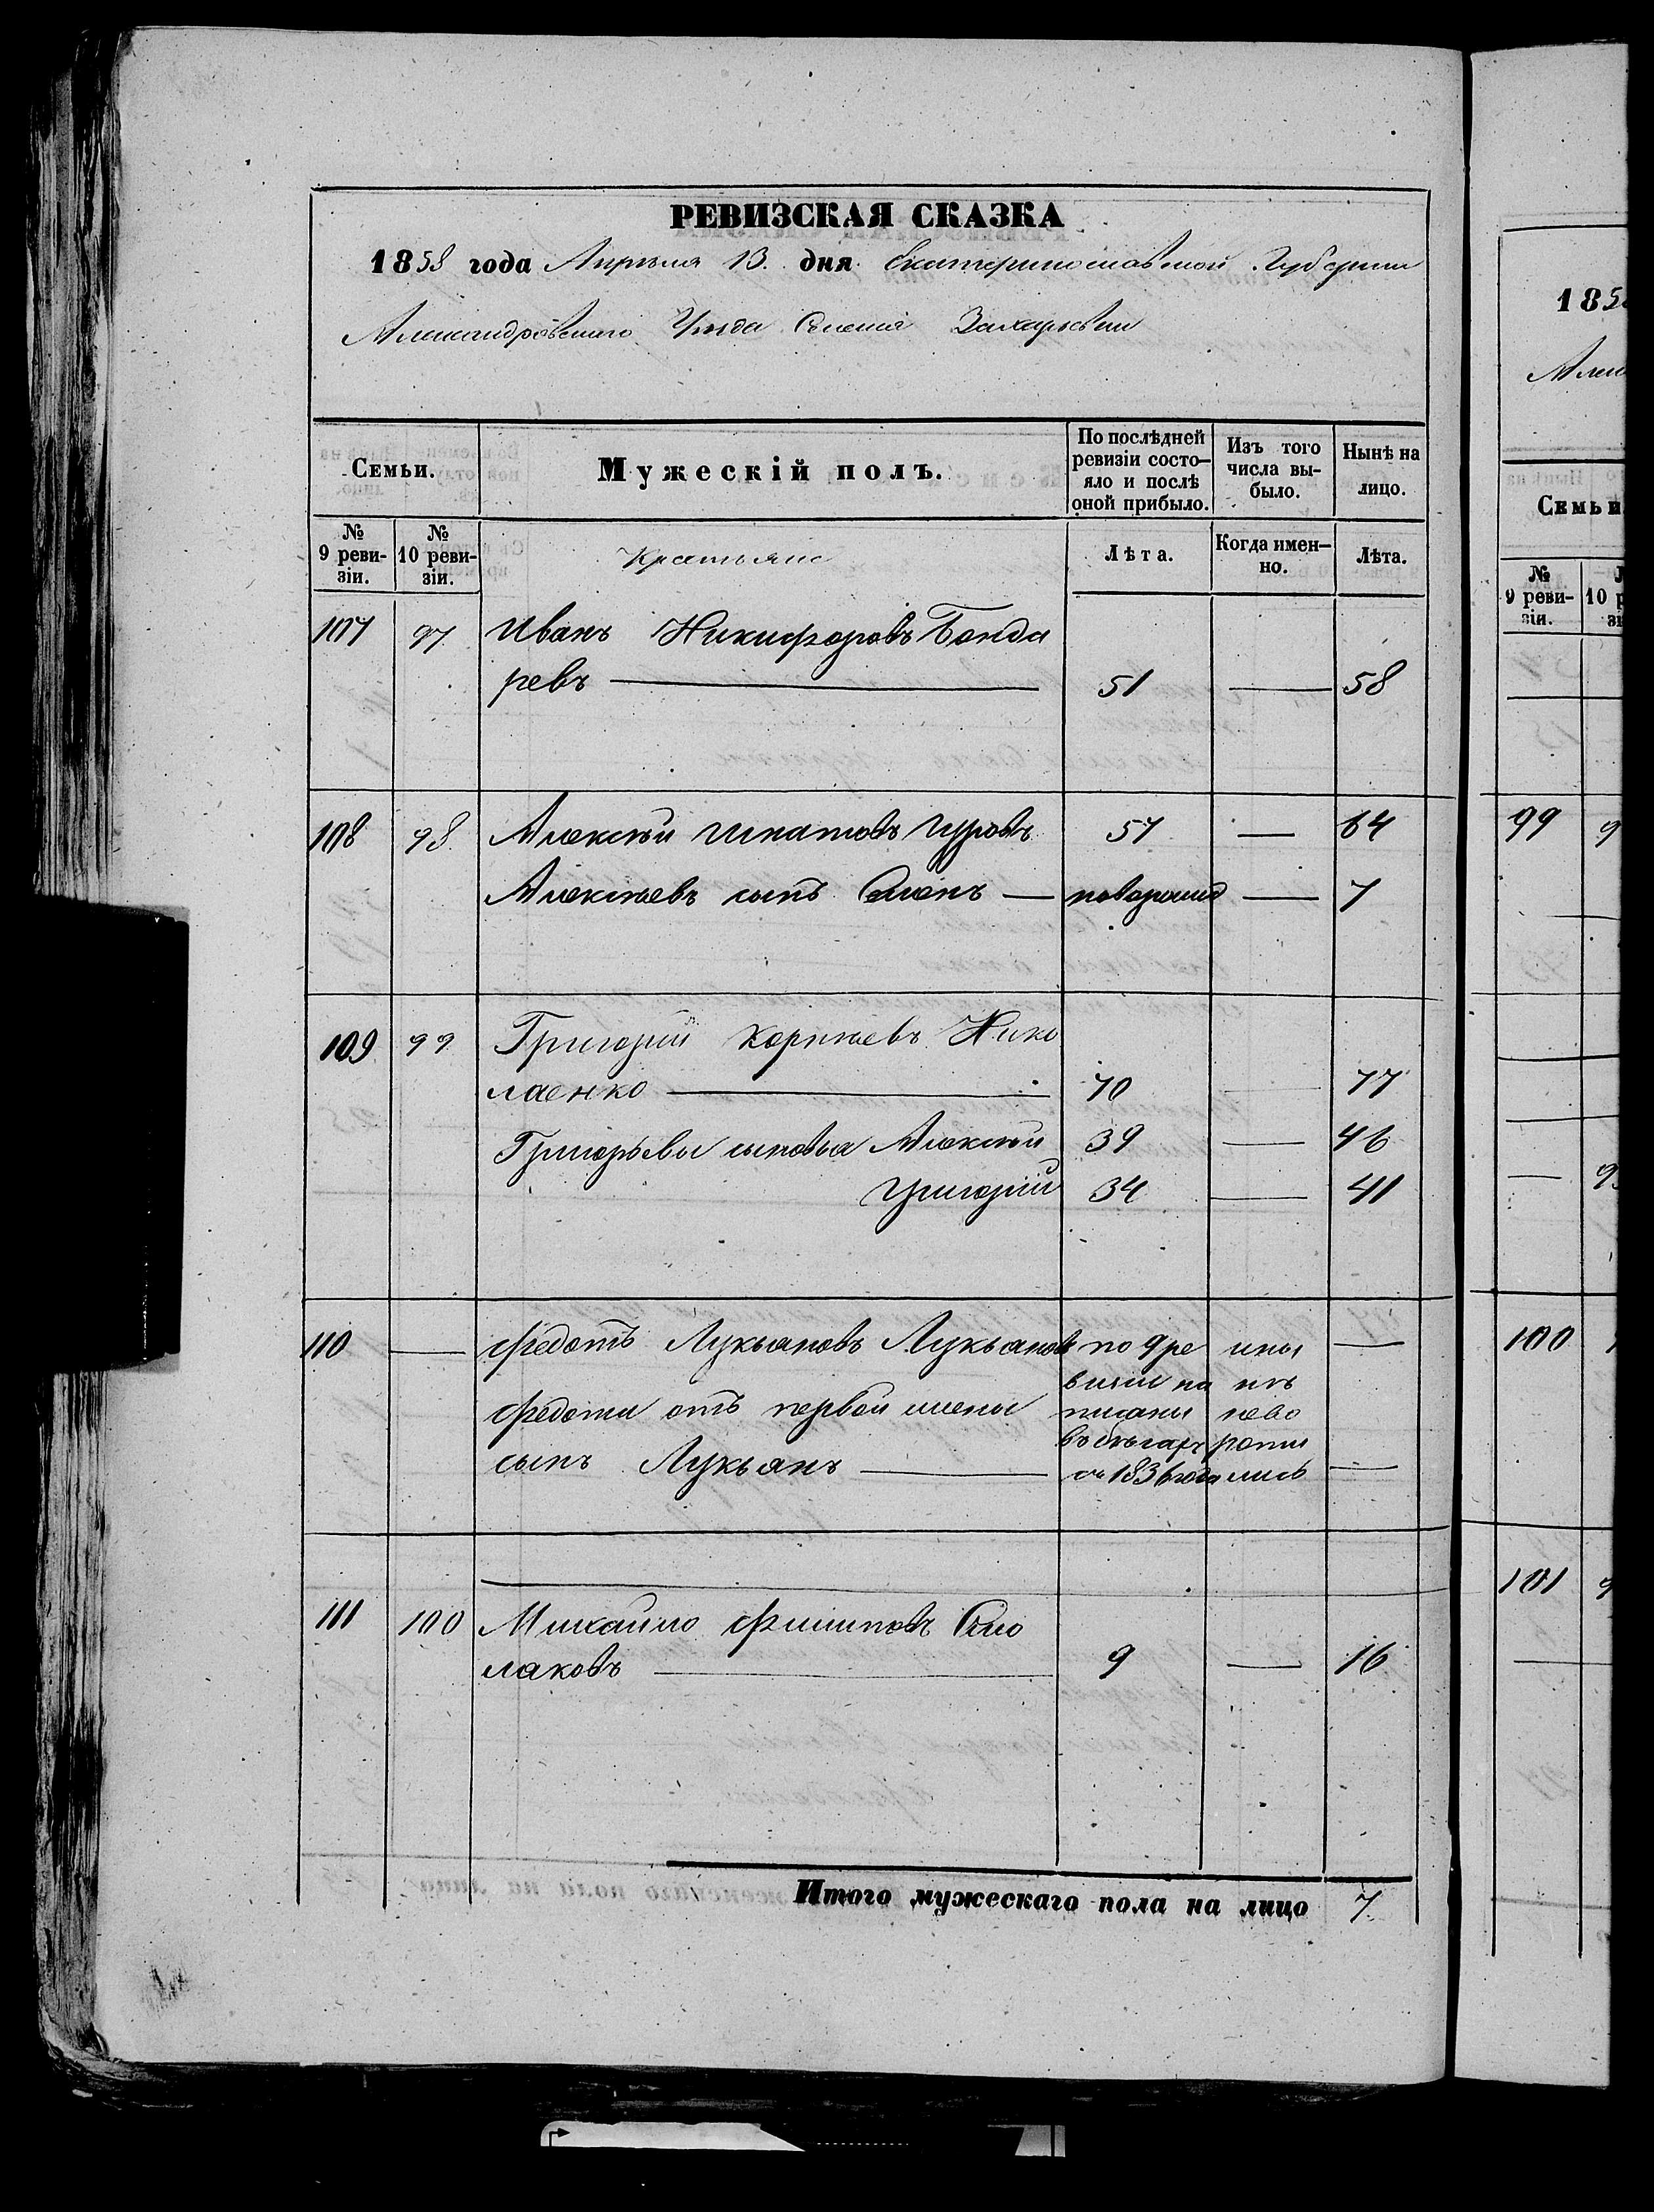 РЕВИЗСКАЯ СКАЗКА
1858 года Апрѣля 13. дня Екатеринославской Губерніи
Александровскаго Уѣзда Селенія Захарьевки
Семьи.
Мужескій полъ.
По послѣдней ревизіи состо-яло и послѣ оной прибыло.
Изъ того числа вы-было.
Нынѣ на лицо.
№ 9 реви-зіи.
№ 10 реви-зіи.
Крестьяне
Лѣта.
Когда имен-но.
Лѣта.
107 97 Иванъ Никифоровъ Бонда
ревъ — 51 — 58
108 98 Алексѣй Игнатовъ Гуровъ 57 — 64
Алексѣевъ сынъ Семенъ — новорожд — 7
109 99 Григорій Корнѣевъ Нико
лаенко — 70 — 77
Григорьевы сыновья Алексѣй 39 — 46
Григорій 34 — 41
110 — Федотъ Лукьяновъ Лукьяновъ по 9 ре ины —
визіи на не
Федота отъ первой жены писаны возв
въ бѣгахъ рати
сынъ Лукьянъ — съ 1836 года лись —
111 100 Михайло Филиповъ
лаковъ — 9 — 16
Итого мужескаго пола на лицо 7
185
Семьи
№ 9 реви-зіи.
10
99
100
101